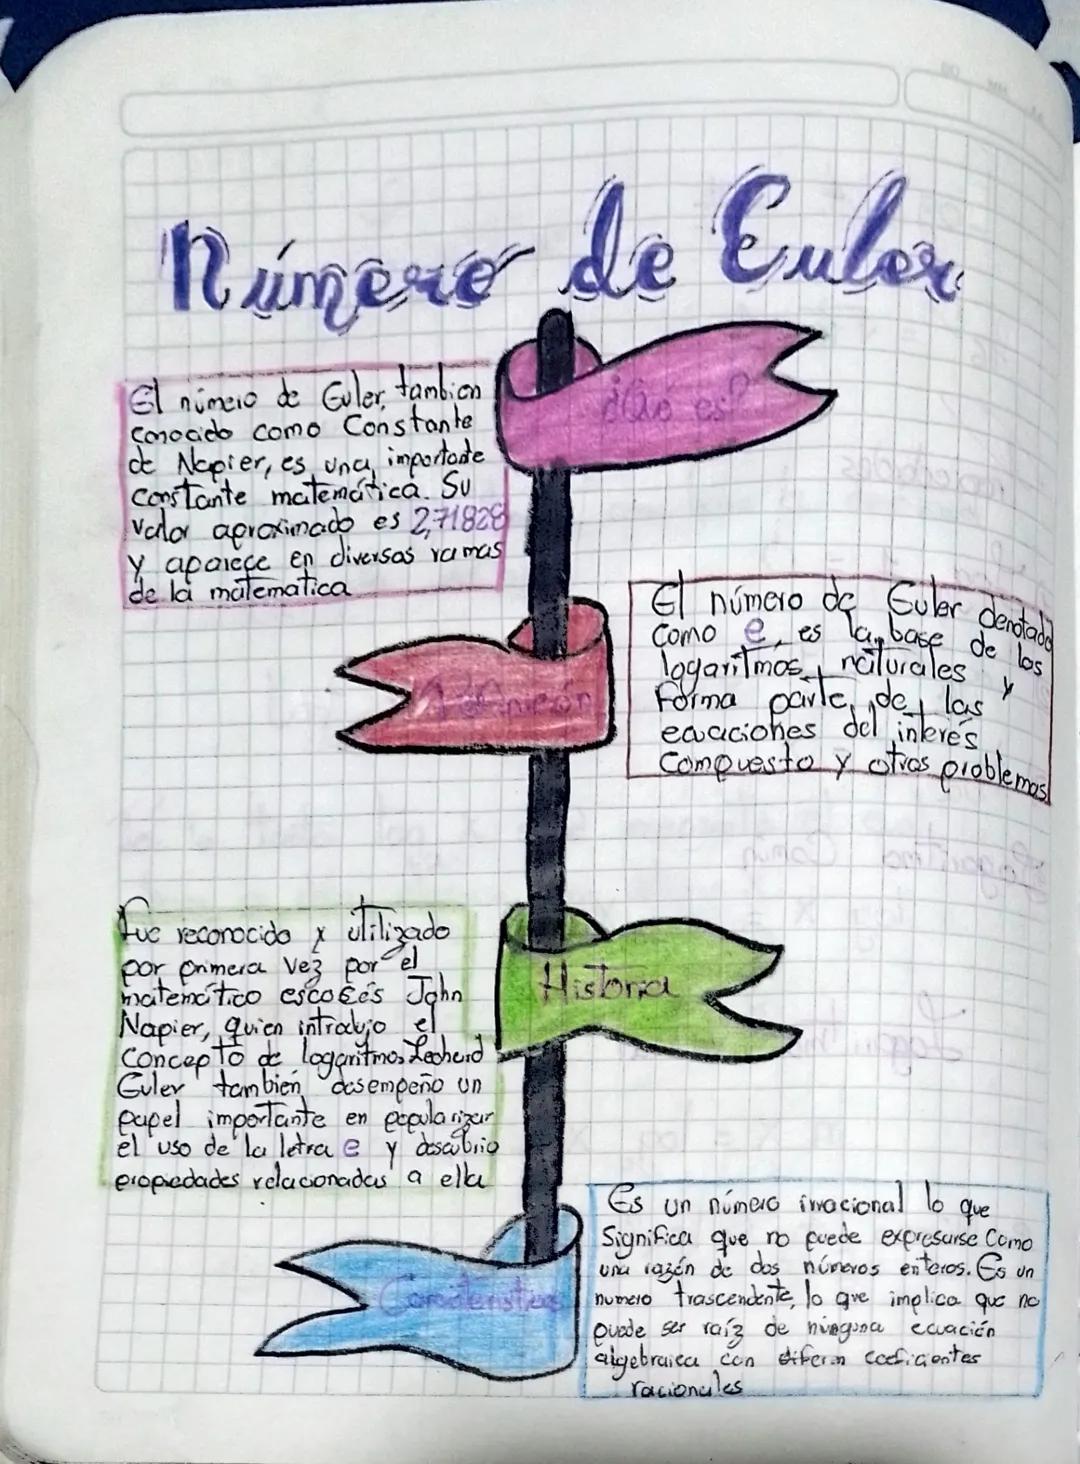 Número de Euler
¿Qué es?
El número de Euler, tambien
conocido como Constante
de Napier, es una importante
constante matemática. Su
valor aproximado es 2,71828
y aparece en diversas ramas
de la matematica
Definición
El número de Euler denotado
como e, es la base de los
logaritmos naturales y
forma parte de las
ecuaciones del interés
compuesto y otros problemas
Historia
Fue reconocido y utilizado
por primera vez por el
matemático escocés John
Napier, quien introdujo el
concepto de logaritmos, Leonhard
Euler también desempeño un
papel importante en popularizar
el uso de la letra e y descubrio
propiedades relacionadas a ella
Características
Es un número irracional lo que
significa que no puede expresarse como
una razón de dos números enteros. Es un
numero trascendente, lo que implica que no
puede ser raíz de ninguna ecuación
algebraica con coeficientes
racionales